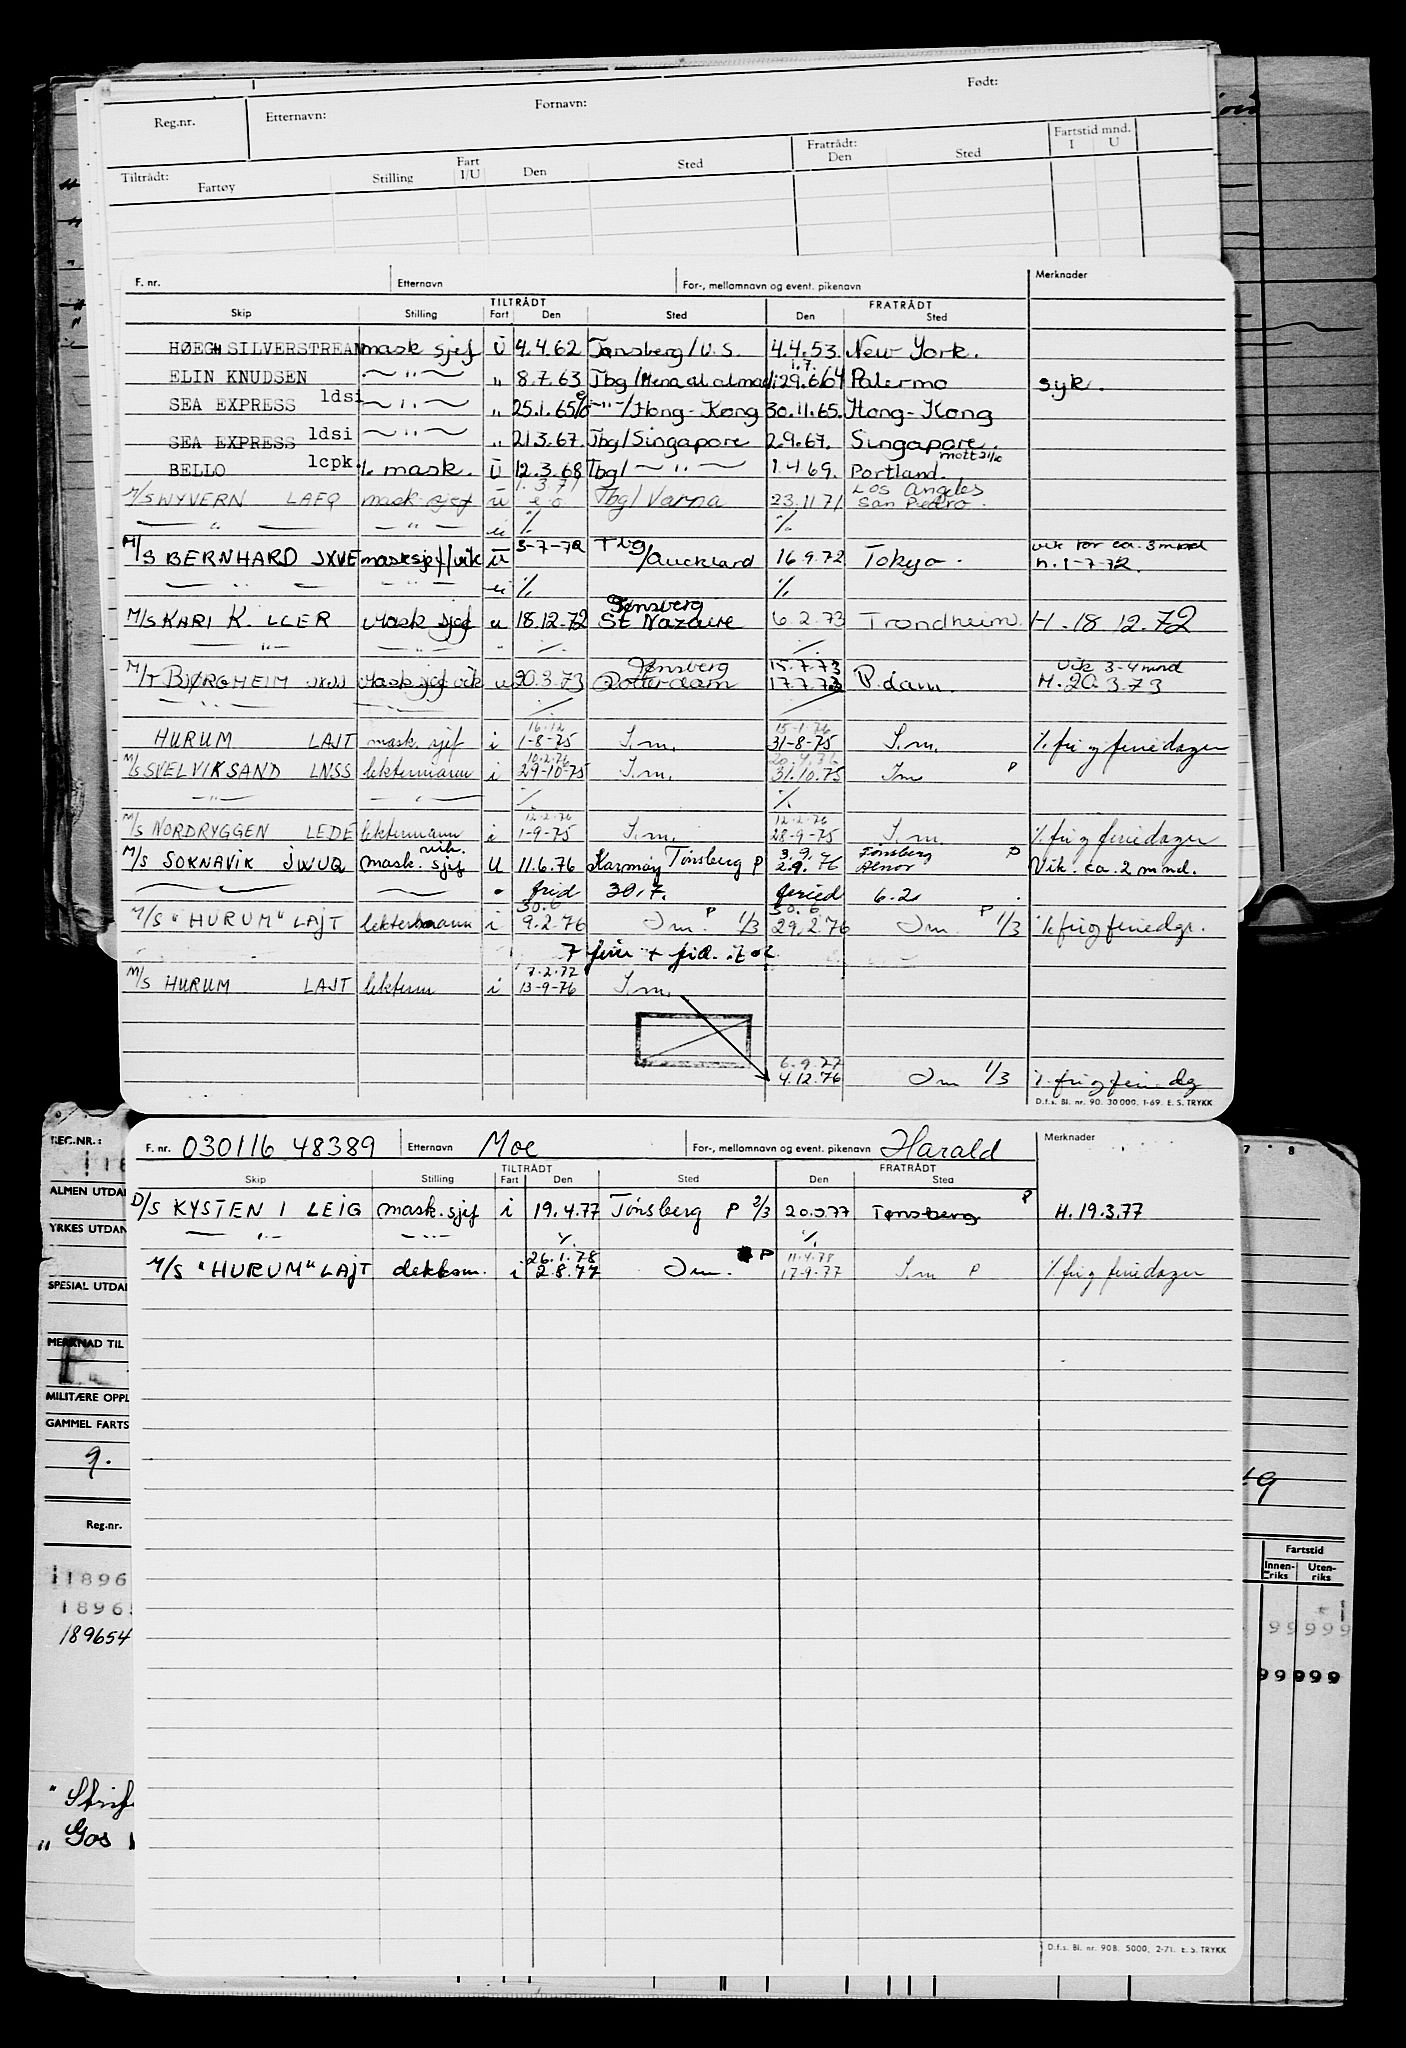 Reg.nr. Etternavn: Fornavn: Født:
Tiltrådt: Fratrådt: Fartstid mnd.
Fartøy Stilling Fart I/U Den Sted Den Sted I U
F. nr. Etternavn For-, mellomnavn og event. pikenavn Merknader
TILTRÅDT FRATRÅDT
Skip Stilling Fart Den Sted Den Sted
HØEGH SILVERSTREAM mask sjef U 4.4.62 Tønsberg/U.S. 4.4.53. New York.
1.7.
ELIN KNUDSEN — " — " 8.7.63 Tbg/Mena al 29.6/64 Palermo syk.
SEA EXPRESS ldsi — " — " 25.1.65 — " —/Hong-Kong 30.11.65. Hong-Kong
SEA EXPRESS ldsi — " — " 21.3.67. Tbg/Singapore 2.9.67. Singapore.
BELLO lcpk. 1. mask. U 12.3.68 Tbg/ — " — 1.4.69. Portland.
1.3.71 Los Angeles
M/S WYVERN LAEQ mask sjef u Tbg/Varna 23.11.71 San Pedro.
— " — — " — u % %
M/S BERNHARD JXVE mask sjef/vik U 3-7-72 Tbg/Auckland 16.9.72 Tokyo. vik for ca. 3 mnd
H. 1-7-72.
— " — — " — u % %
Tønsberg
M/S KARI K. LCER Mask sjef u 18.12.72 St Nazaire 6.2.73 Trondheim. H. 18 12. 72
— " — — " — % %
Tønsberg 15.7.73 Vik 3-4 mnd
M/T BJØRGHEIM Mask sjef vik u 20.3.73 Rotterdam 17.7.73 R.dam. H. 20.3.73
— " — — " — % %
16.12 15-1-76
HURUM LAJT mask. sjef i 1-8-75 I.m. 31-8-75 I.m. % fri og feriedager
10.2.76 20.4.76
M/S SVELVIKSAND LNSS lektermann i 29-10-75 I.m. 31.10.75 Im P
— " — — " — % %
12.2.76 12.2.76
M/S NORDRYGGEN LEDE lektermann i 1-9-75 I.m. 28-9-75 I.m. % fri og feriedager
vik. Tønsberg P
M/S SOKNAVIK JWUQ mask. sjef U 11.6.76 Karmøy Tønsberg P 2.9.76 Vik. ca. 2 mnd.
frid 30.7. feried 6.2
30.6 P 30.6 P
M/S "HURUM" LAJT lektermann i 9.2.76 Im. 1/3 29.2.76 Im. 1/3 % fri og feriedgr.
7 ferie + frid.
7.2.77
M/S HURUM LAJT lekterm i 13-9-76 I.m.
6.9.77
4.12.76 Im 1/3 % fri og ferie dg
D.f.s. Bl. nr. 90. 30 000. 1-69. E. S. TRYKK
REG.NR.:
F. nr. 030116 48389 Etternavn Moe For-, mellomnavn og event. pikenavn Harald Merknader
TILTRÅDT FRATRÅDT
Skip Stilling Fart Den Sted Den Sted
D/S KYSTEN I LEIG mask. sjef i 19.4.77 Tønsberg P 2/3 Tønsberg P H. 19.3.77
— " — — " — % %
26.1.78 P 11.4.78
M/S "HURUM" LAJT dekksm. i 2.8.77 Im. 17-9-77 I.m P % fri og feriedager
ALMEN UTDA
YRKES UTDAN
SPESIAL UTDA
MERKNAD TIL
MILITÆRE OPPL
GAMMEL FARTS
9.
Reg.nr. Fartstid
Innenriks Utenriks
11896
18965
189654
99999
99999
" Strif
" Gos
D.f.s. Bl. nr. 90B. 5000. 2-71. E. S. TRYKK